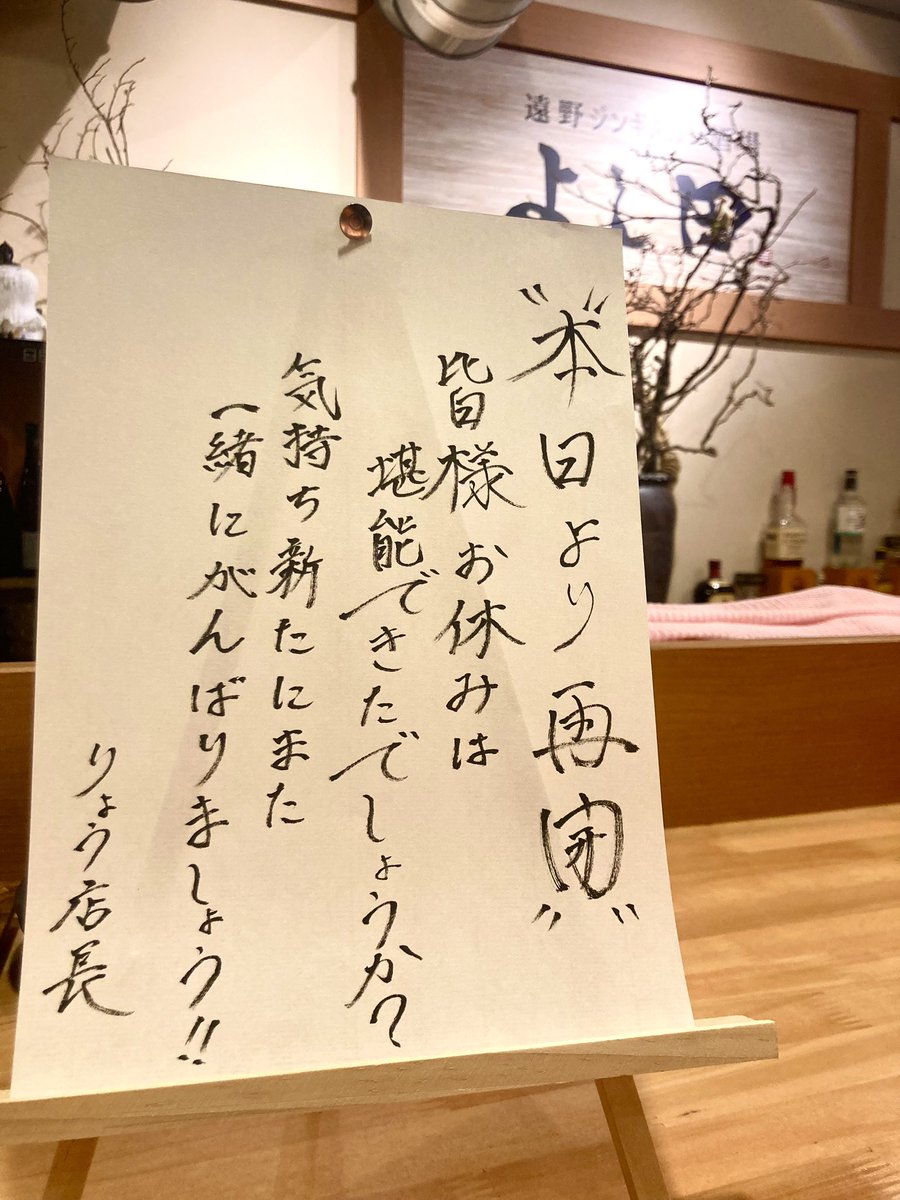 遠野ジンギスカン酒場
よし田
"本日より再開"
皆様お休みは
堪能できたでしょうか?
気持ち新たにまた
一緒にがんばりましょう!!
りょう店長